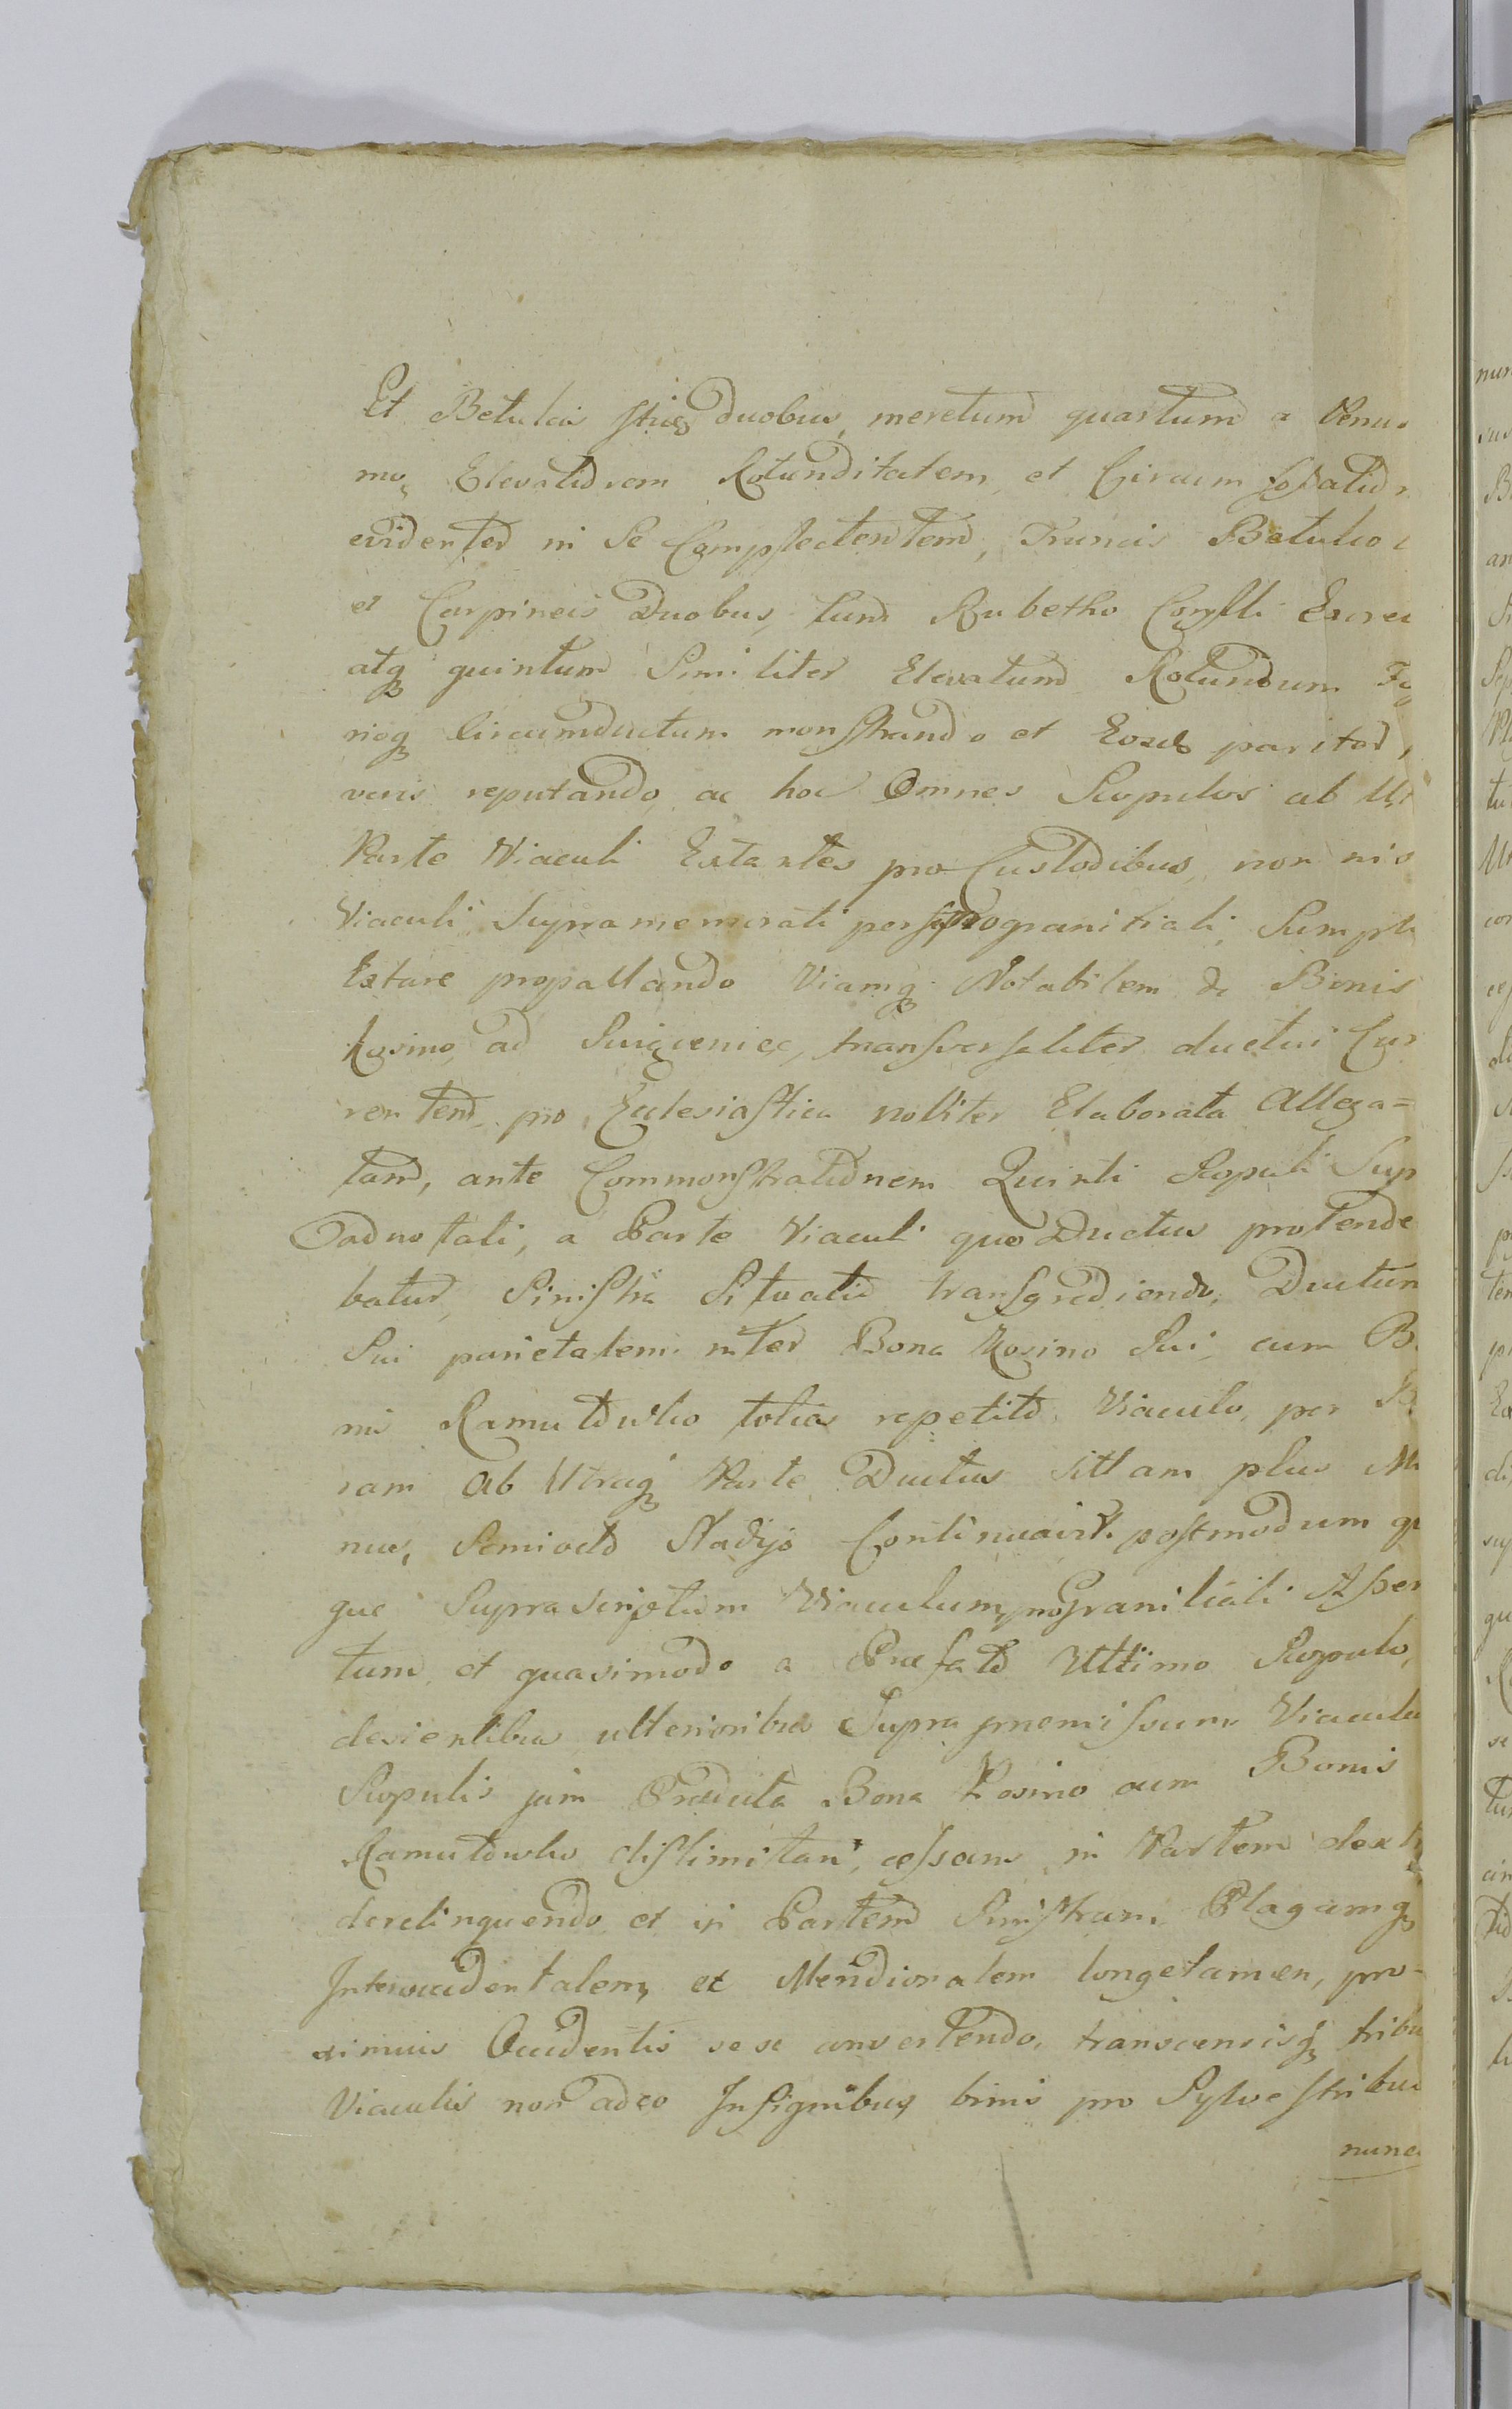 Et Betuleis duobus, meretum quartum a Venu
mo, Elevationem Rotunditatem, et Circum fossation
evidenter in Se Complectentem, Truncis Betuleo
et Carpineis Duobus, tum Rubetho Coryli Excre
atq quintum Similiter Elevatum Rotundum Fo
rieq Circumductum monstrando et Eosdem pariter,
veris reputando, ac hoc Omnes Scopulos ab Ut
Parte Viaculi Extantes pro Custodibus, non nis
Viaculi Supramemorati per pro granitiali, Sumpti
Extare propallando Viamq Notabilem de Bonis
Rosino, ad transversaliter ductui Cur
rentem, pro Ecclesiastica noviter Elaborata Allega=
tam, ante Commonstrationem Quinti Scopuli Sup
adnotati, a Parte Viaculi quo Ductus protende
batur, Sinistra Situati transgrediendo, Ductum
Sui parietalem inter Bona Rosino Sui, cum B
nis Ramutowko toties repetito, Viaculo, per B
ram ab Utraq Parte Ductus sitam plus Mi
nus, Semiocto Stadijs Continuavit. postmodum qu
que Suprascriptum Viaculum, pro Granitiali Asser
tum et quasimodo a Præfato Ultimo Scopulo,
desientibus ulterioribus Supra præmissum Viaculu
Scopulis jam Prædicta Bona Rosino cum Bonis
Ramutowko distimitari, cessans in Partem dext
derelinquendo, et in Partem Sinistram Plagamq
Interoccidentalem, et Meridionalem longetamen, pro-
ximius Occidentis sese convertendo, transcensisq tribu
Viaculis non adeo Insignibus, binis pro Sylvestribus
nunc